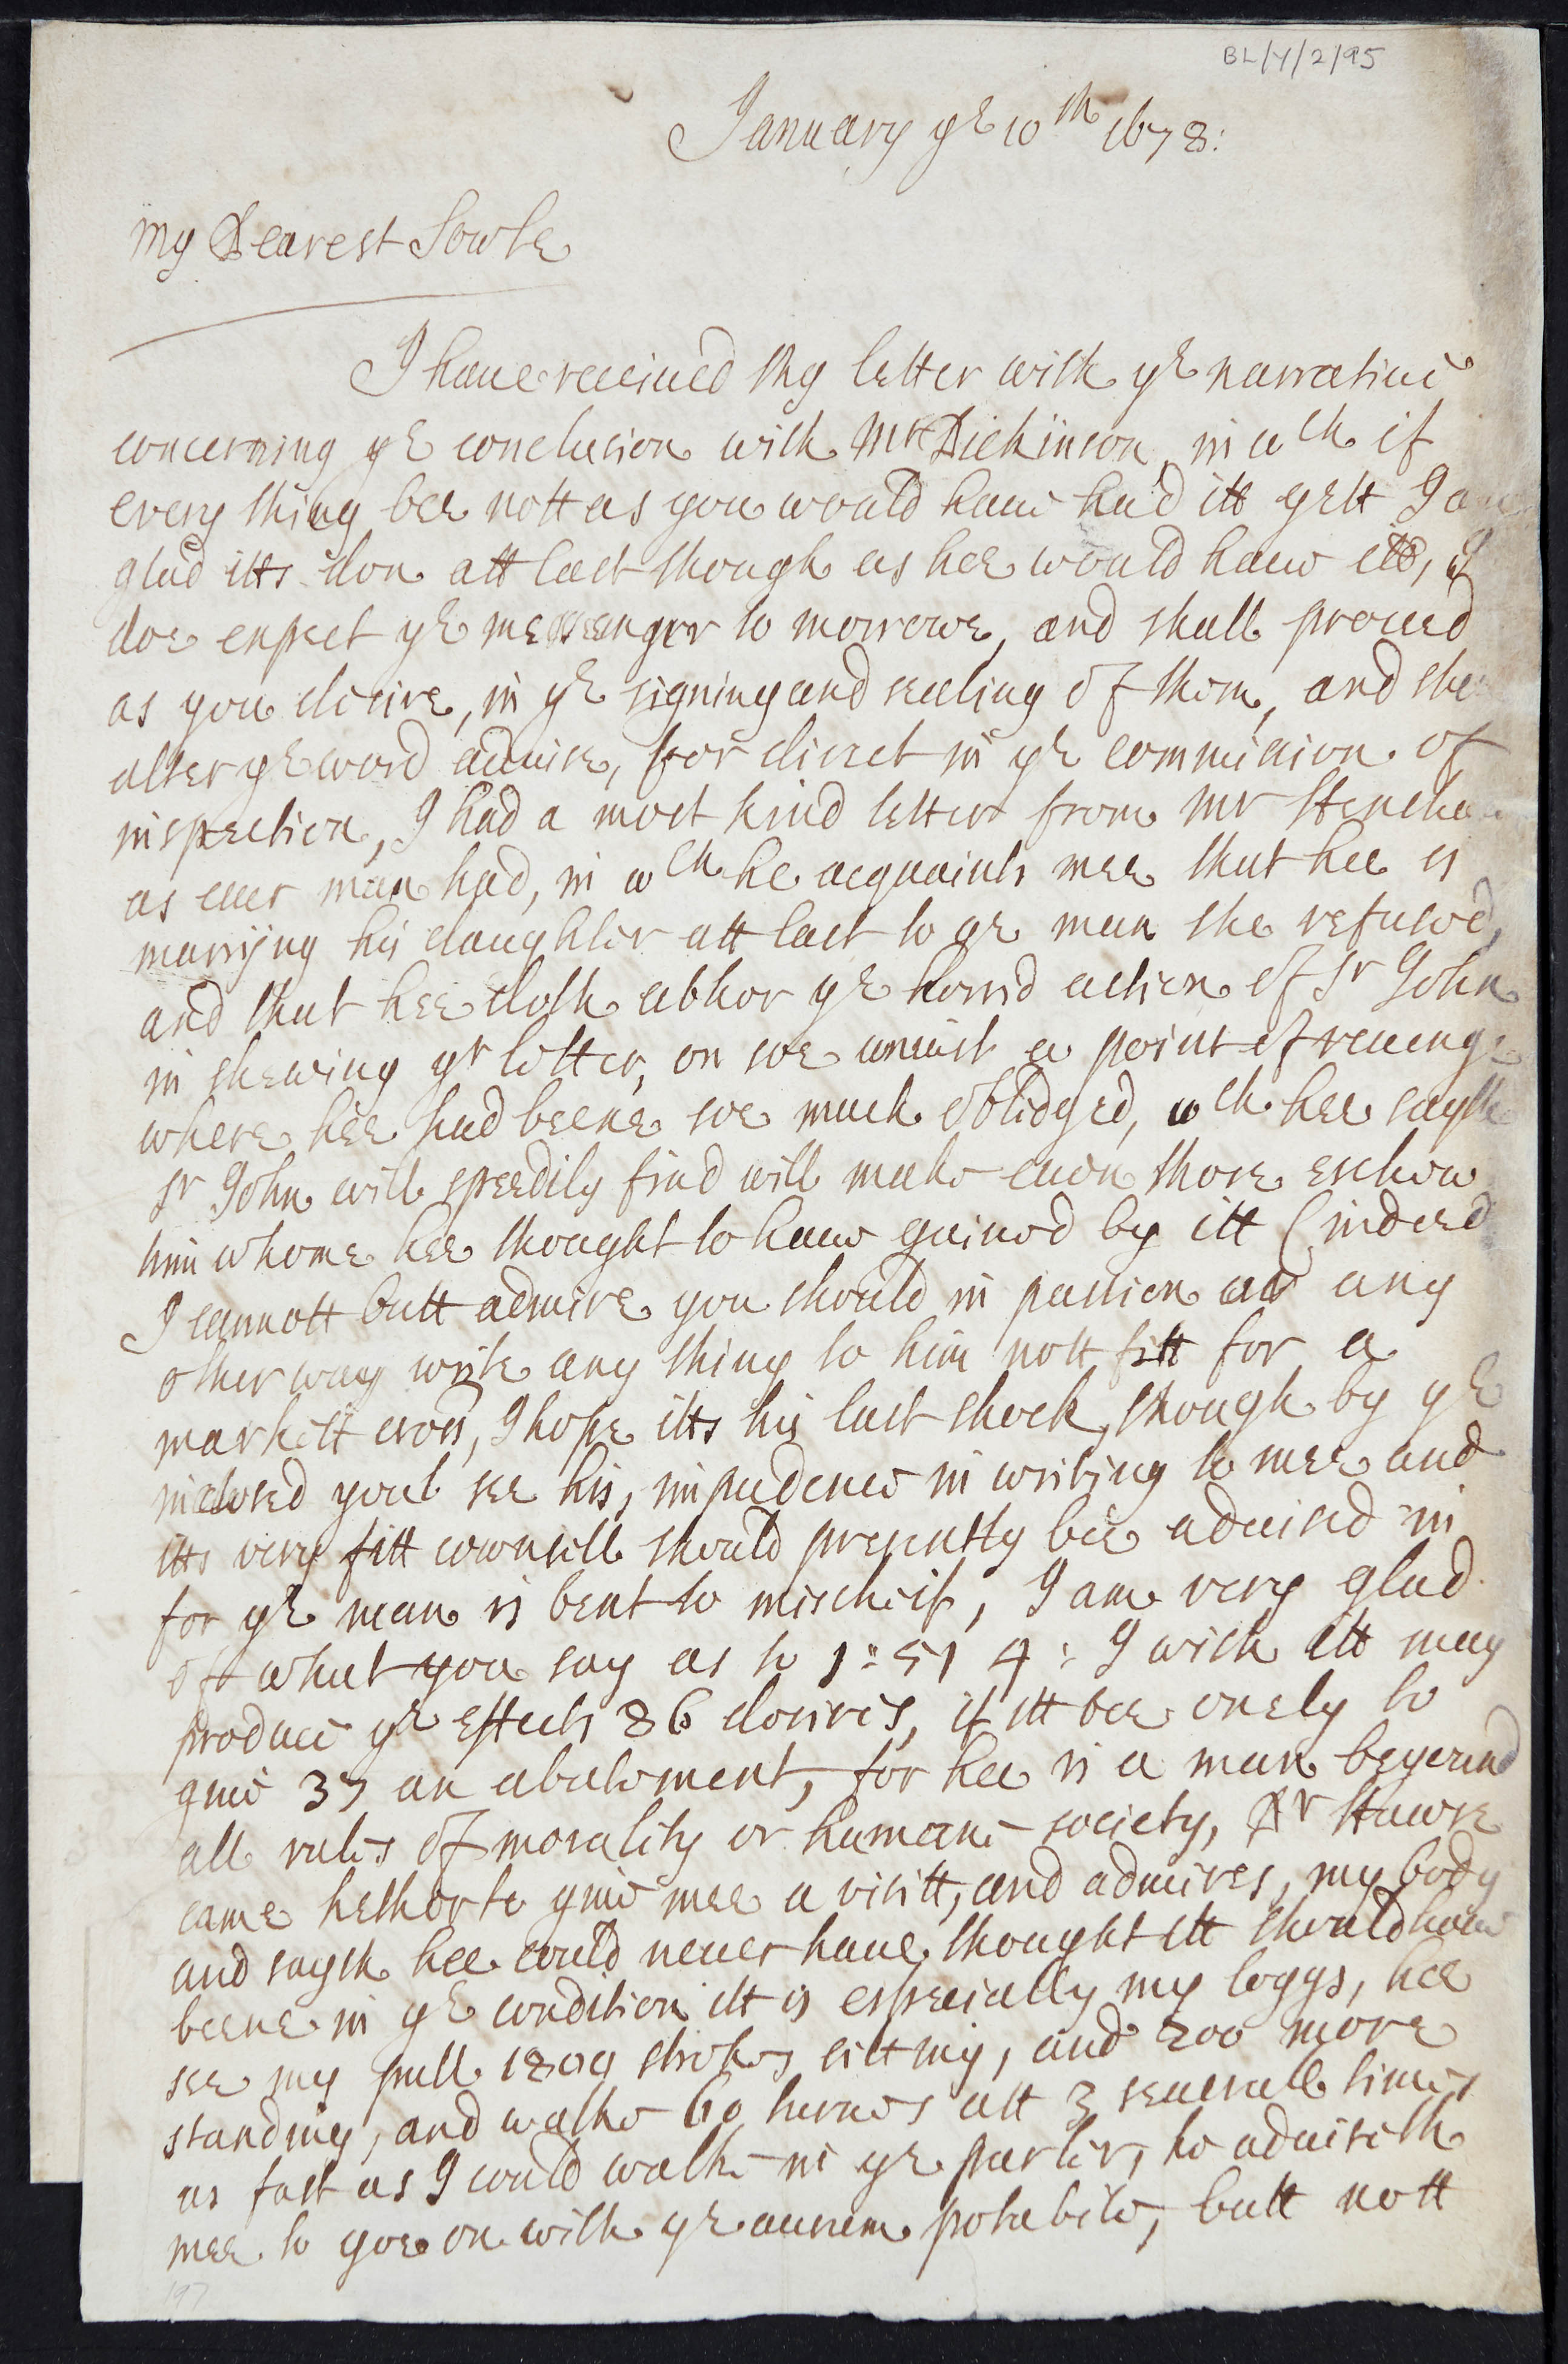 BL/Y/2/95
January ye 10th 1678:
my Dearest Sowle
I haue receiued thy letter with ye narratiue
concerning ye conclusion with Mr Dickinson, in wch if
every thing bee nott as you would haue had itt yett I am
glad itts don att last though as hee would haue itt, I
doe expect ye messenger to morrowe, and shall proceed
as you desire, in ye signing and sealing of them, and
alter ye word aduise, for direct in ye commission of
inspection, I had a most kind letter from Mr
as euer man had, in wch he acquaints mee that hee is
marrijng his daughter att last to ye man she refused,
and that hee doth abhor ye horrid action of Sr John
in shewing yr letter, on soe uniust a point of reuenge
where hee had beene soe much oblidged, wch hee sayth
Sr John will speedily find will make euen those eschew
him whome hee thought to haue gained by itt (indeed
I cannott butt admire you should in passion or any
other way write any thing to him nott fitt for a
markett cross, I hope itts his last shock, though by ye
inclosed youl see his, impudence in writing to mee and
itts very fitt cownsell should presently bee aduised in
for ye man is bent to mischeif, I am very glad
of what you say as to 1: 51 4: I wish itt may
produce ye effects 86 desires, if itt bee onely to
giue 37 an abatement, for hee is a man beyeand
all rules of morality or humane society, Dr Hawse
came hether to giue mee a visitt, and admires, my body
and sayth hee could neuer haue thought itt should haue
beene in ye condition itt is especially my leggs, hee
see my pull 1800 strokes sitting, and 200 more
standing, and walke 60 turnes att 3 seuerall times
as fast as I could walke in ye parler, he aduiseth
mee to goe on with ye aurum potabile, butt nott
197